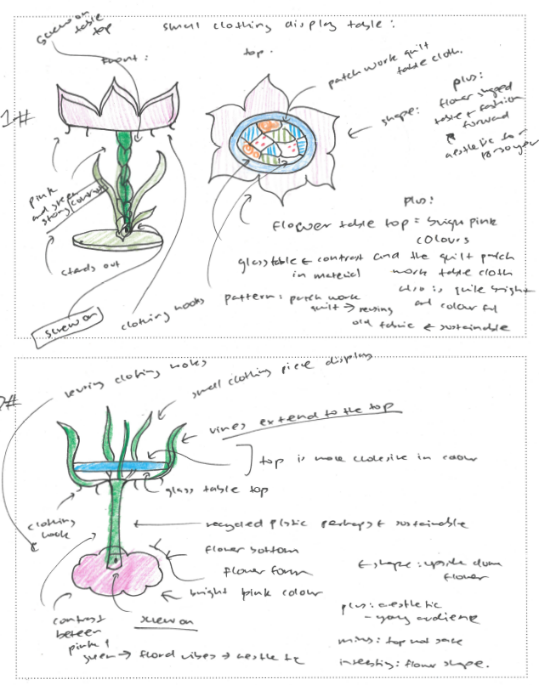 small clothing display table:
screw on
table
top
front:
top.
patch work quilt
table cloth.
1#
plus:
shape:
flower shaped
table & fashion
forward
aesthetic to
pink
and green
strong contrast
plus:
flower table top = bright pink
colours
glass table & contrast
in material
and the quilt patch
work table cloth
also is quite bright
and colourful
stands out
screw on
clothing hooks
pattern: patch work
quilt → reusing
old fabric & sustainable
reusing clothing hooks
small clothing piece display
#
vines extend to the top
top is more cohesive in colour
glass table top
clothing
hook
recycled plastic perhaps & sustainable
flower bottom
flower form
shape: upside down
flower
bright pink colour
contrast
between
pink &
green → floral vibes → aesthetic
screw on
plus: aesthetic
- young audience
minus: top not safe
interesting: flower shape.